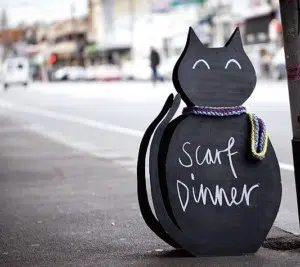 Scarf
Dinner